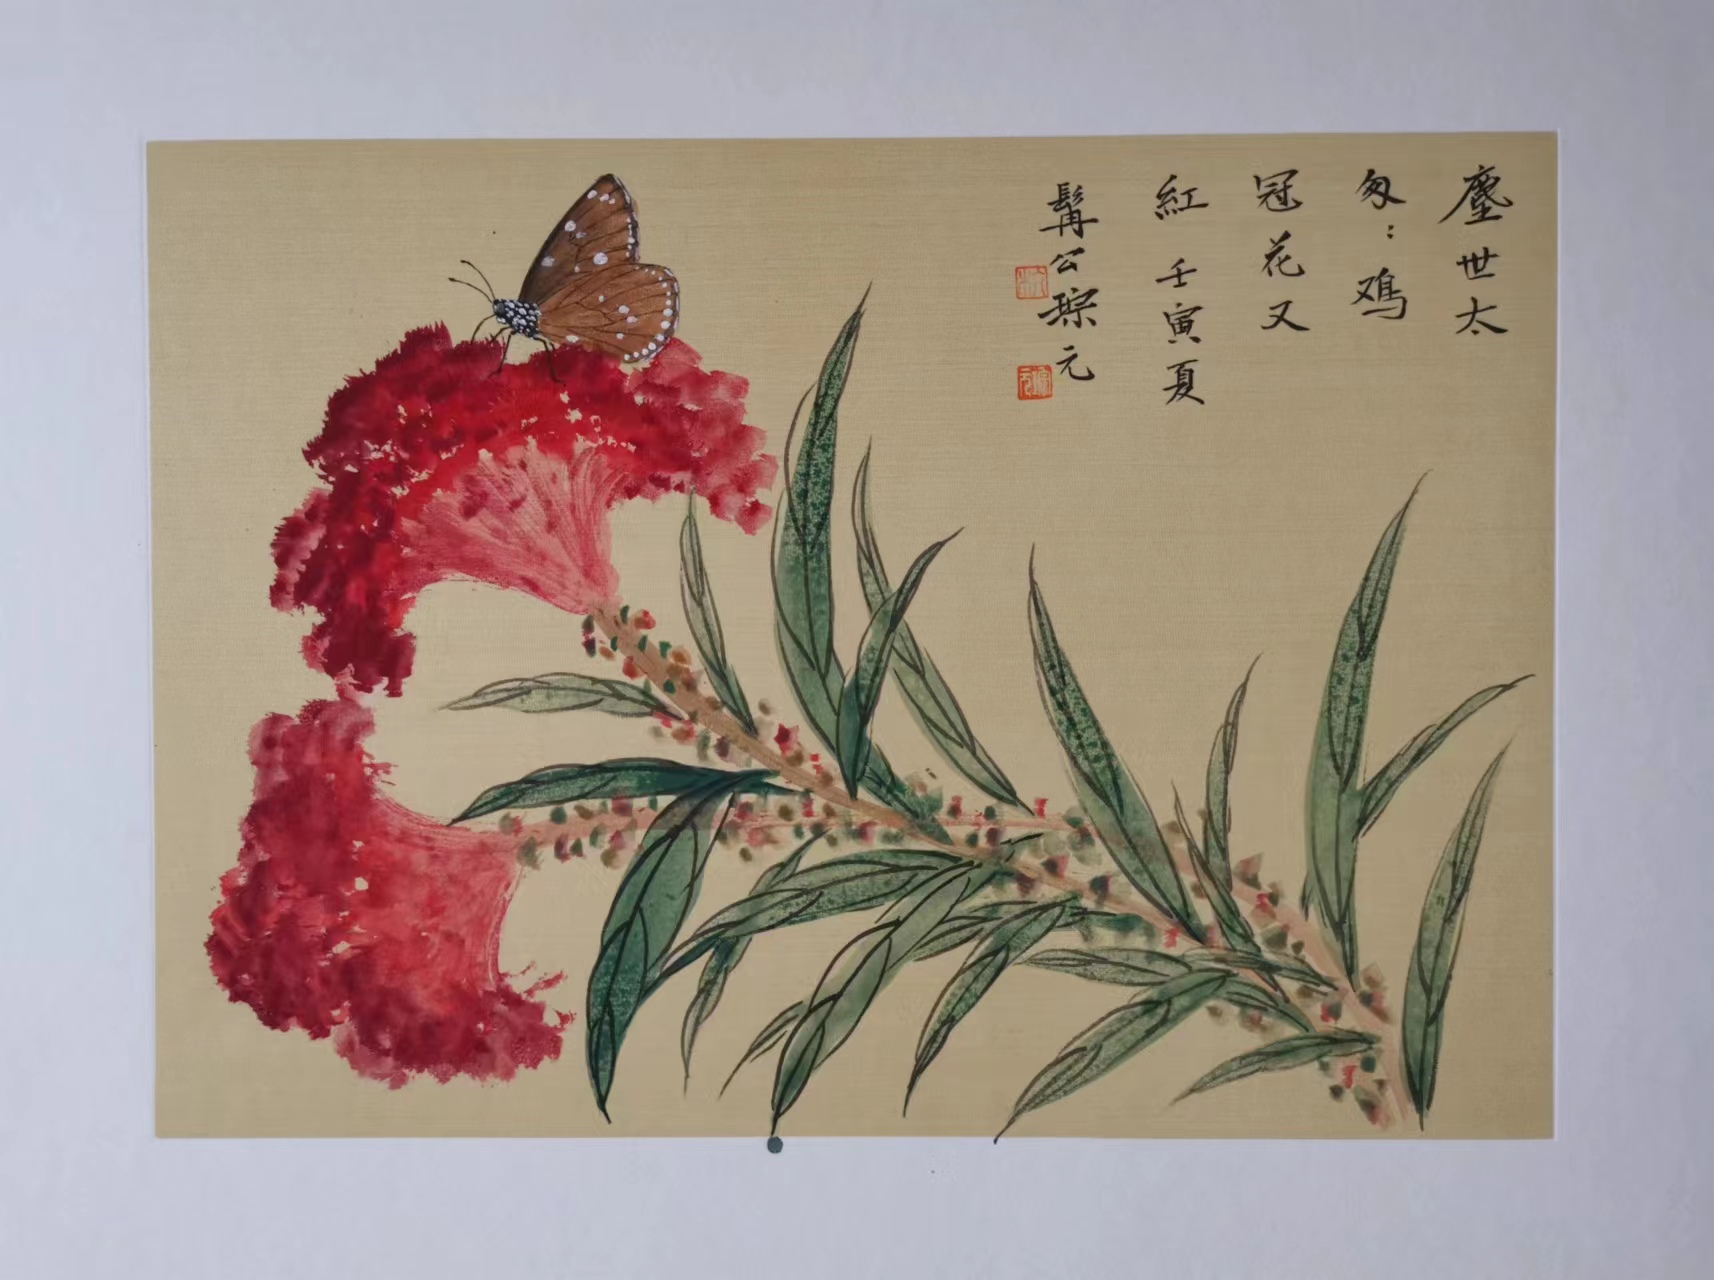 塵世太
匆：鸡
冠花又
紅 壬寅夏
髯公琮元